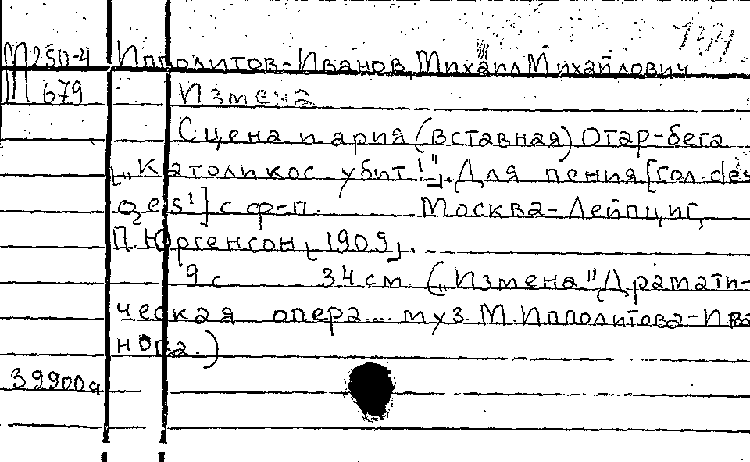 М250-4 Ипполитов-Иванов, Михаил Михайлович
М 679 Измена
Сцена и ария (вставная) Отар-бега
[„Католикос убит!"]. Для пения [гол. des-
ges¹] с ф-п. Москва-Лейпциг,
П. Юргенсон, [1909].
9 с 34 см („Измена" Драмати-
ческая опера... муз. М. Ипполитова-Ива
нова.)
39900а